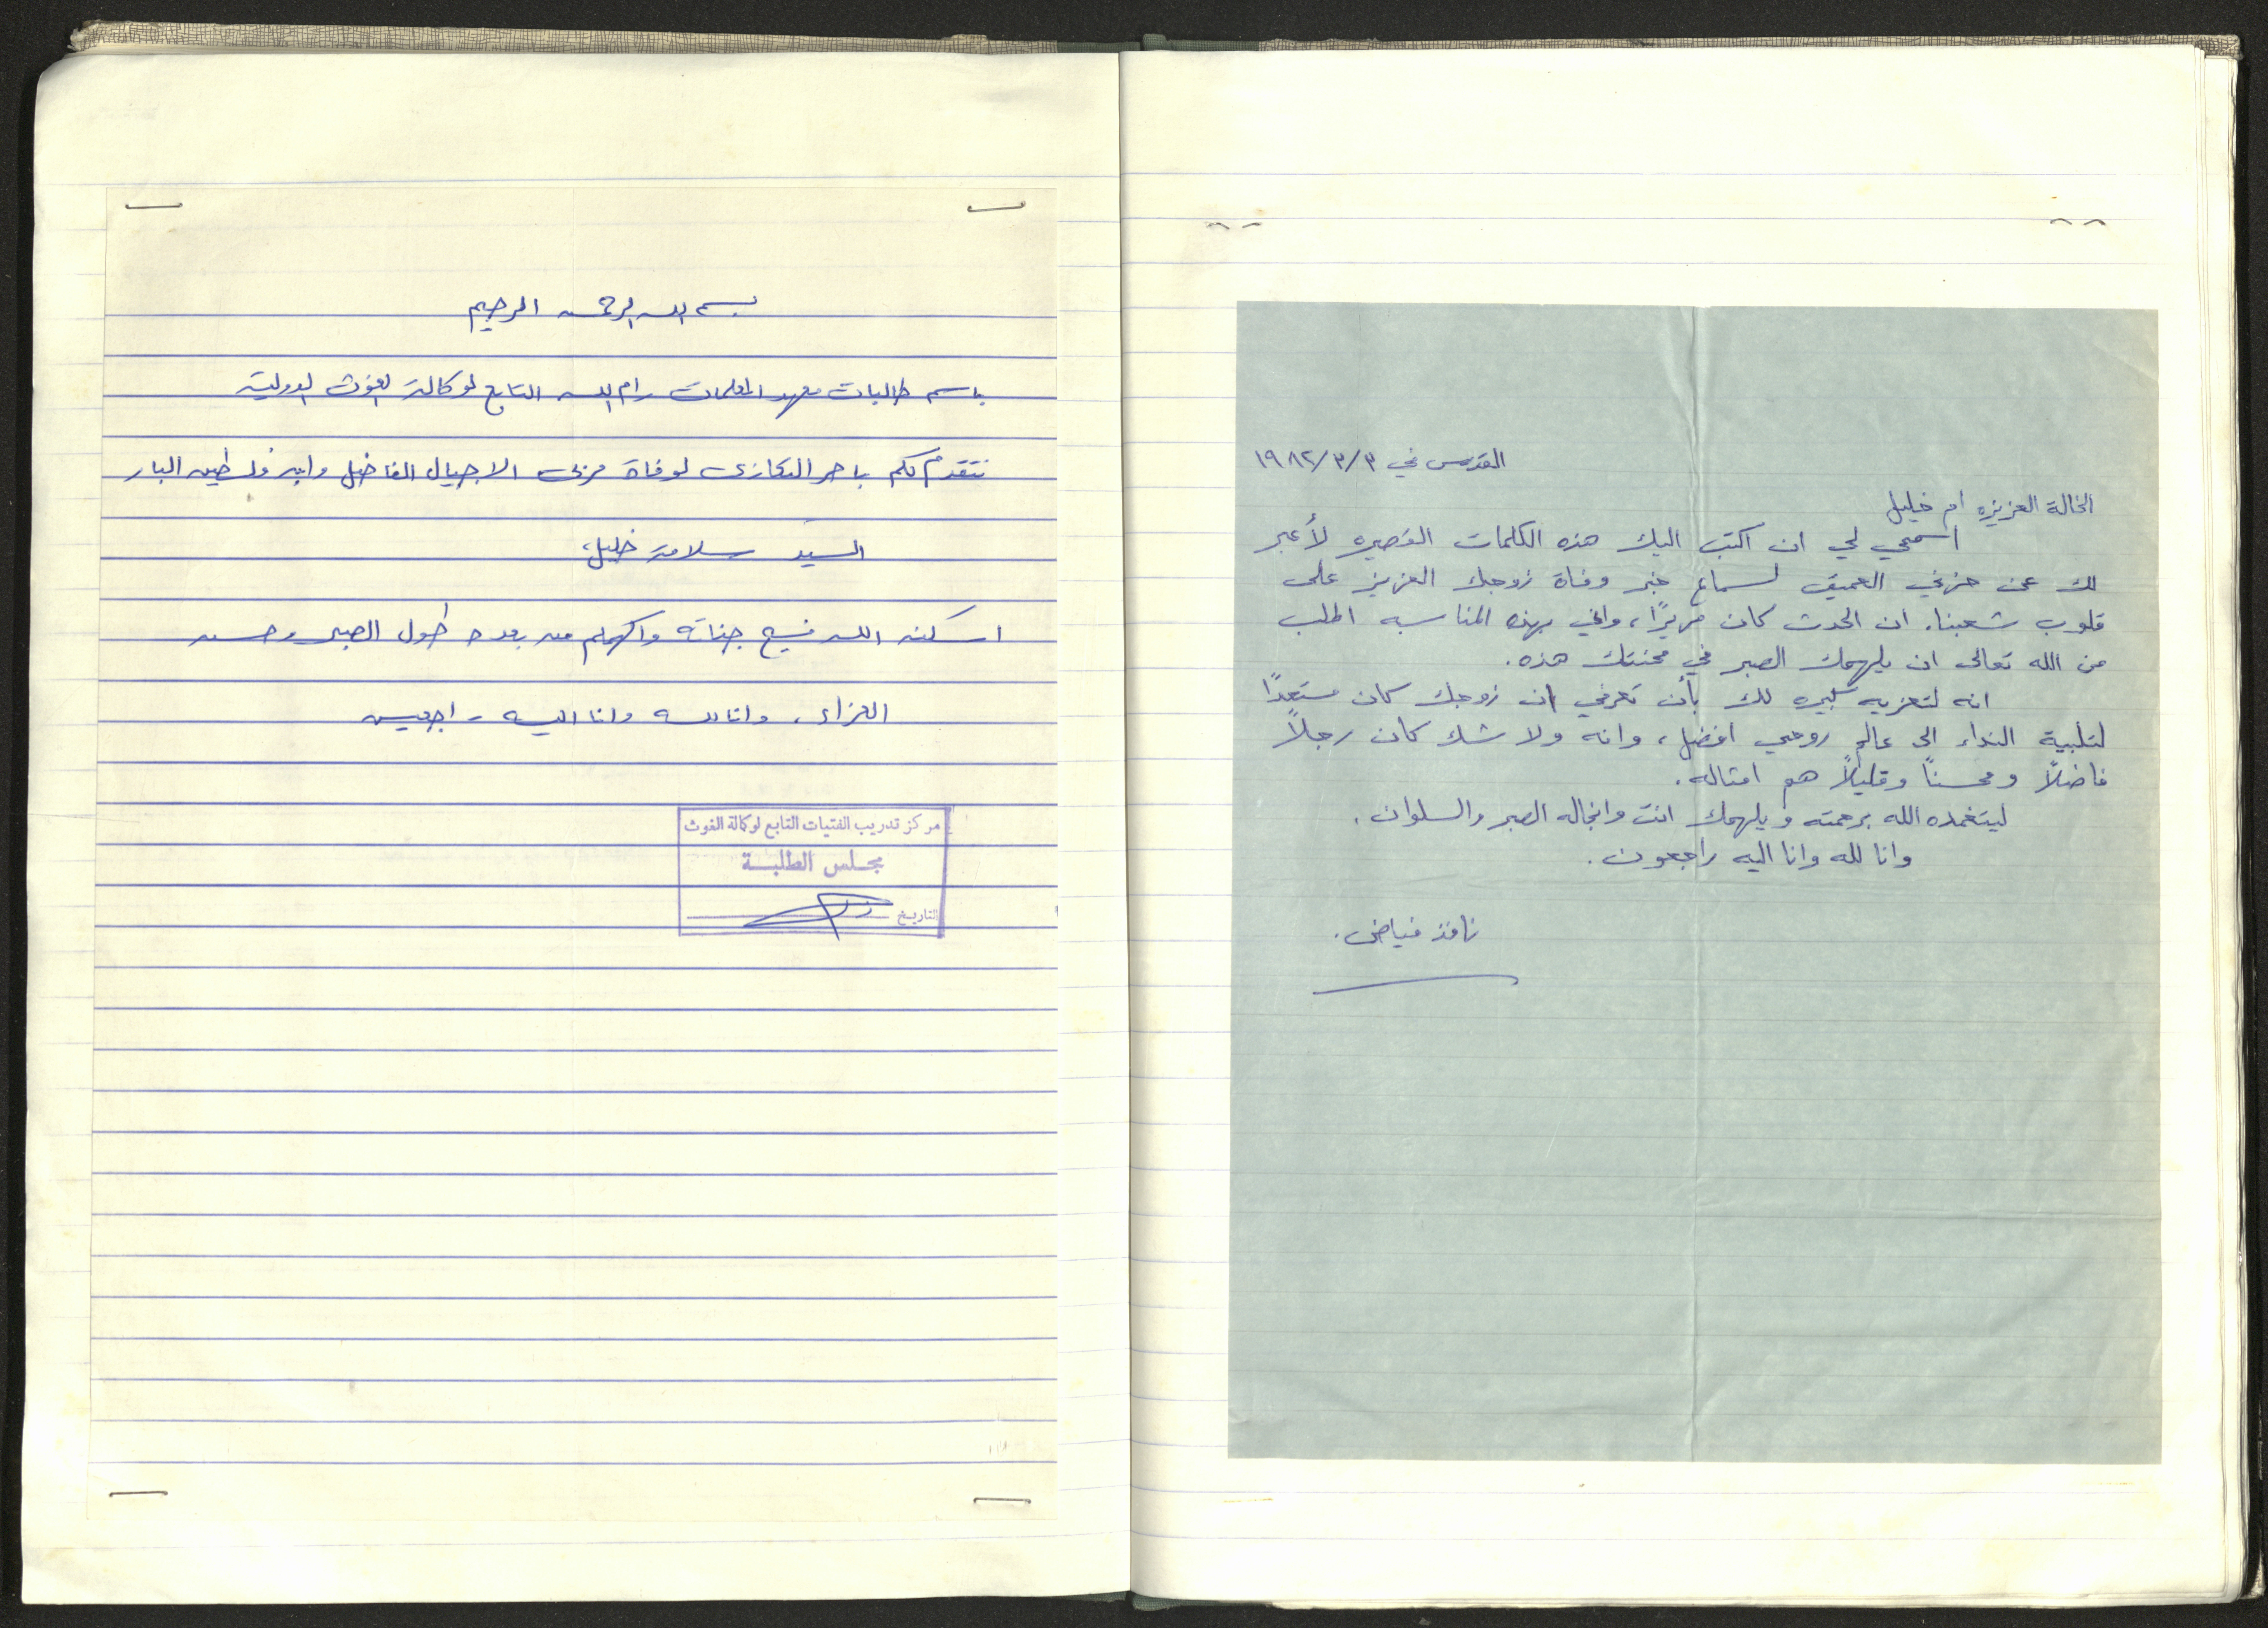 القدس في ٣/٣/١٩٨٢
الخالة العزيزه ام خليل
اسمحي لي ان اكتب اليك هذه الكلمات القصيره لأعبر
لك عن حزني العميق لسماع خبر وفاة زوجك العزيز على
قلوب شعبنا. ان الحدث كان مريرًا، واني بهذه المناسبه اطلب
من الله تعالى ان يلهمك الصبر في محنتك هذه.
انه لتعزيه كبيره لك بأن تعرفي ان زوجك كان مستعدًا
لتلبية النداء الى عالم روحي افضل، وانه ولا شك كان رجلاً
فاضلاً ومحسناً وقليلاً هم امثاله.
ليتغمده الله برحمته ويلهمك انت وانجاله الصبر والسلوان.
وانا لله وانا اليه راجعون.
نافذ فياض.
بسم الله الرحمن الرحيم
باسم طالبات معهد المعلمات رام الله التابع لوكالة الغوث الدولية
نتقدم لكم باحر التعازي لوفاة مربي الاجيال الفاضل وابن فلسطين البار
السيد سلامة خليل،
اسكنه الله فسيح جناته والهمكم من بعده طول الصبر وحسن
العزاء، وانا لله وانا اليه راجعين
مركز تدريب الفتيات التابع لوكالة الغوث
مجلس الطلبة
التاريخ